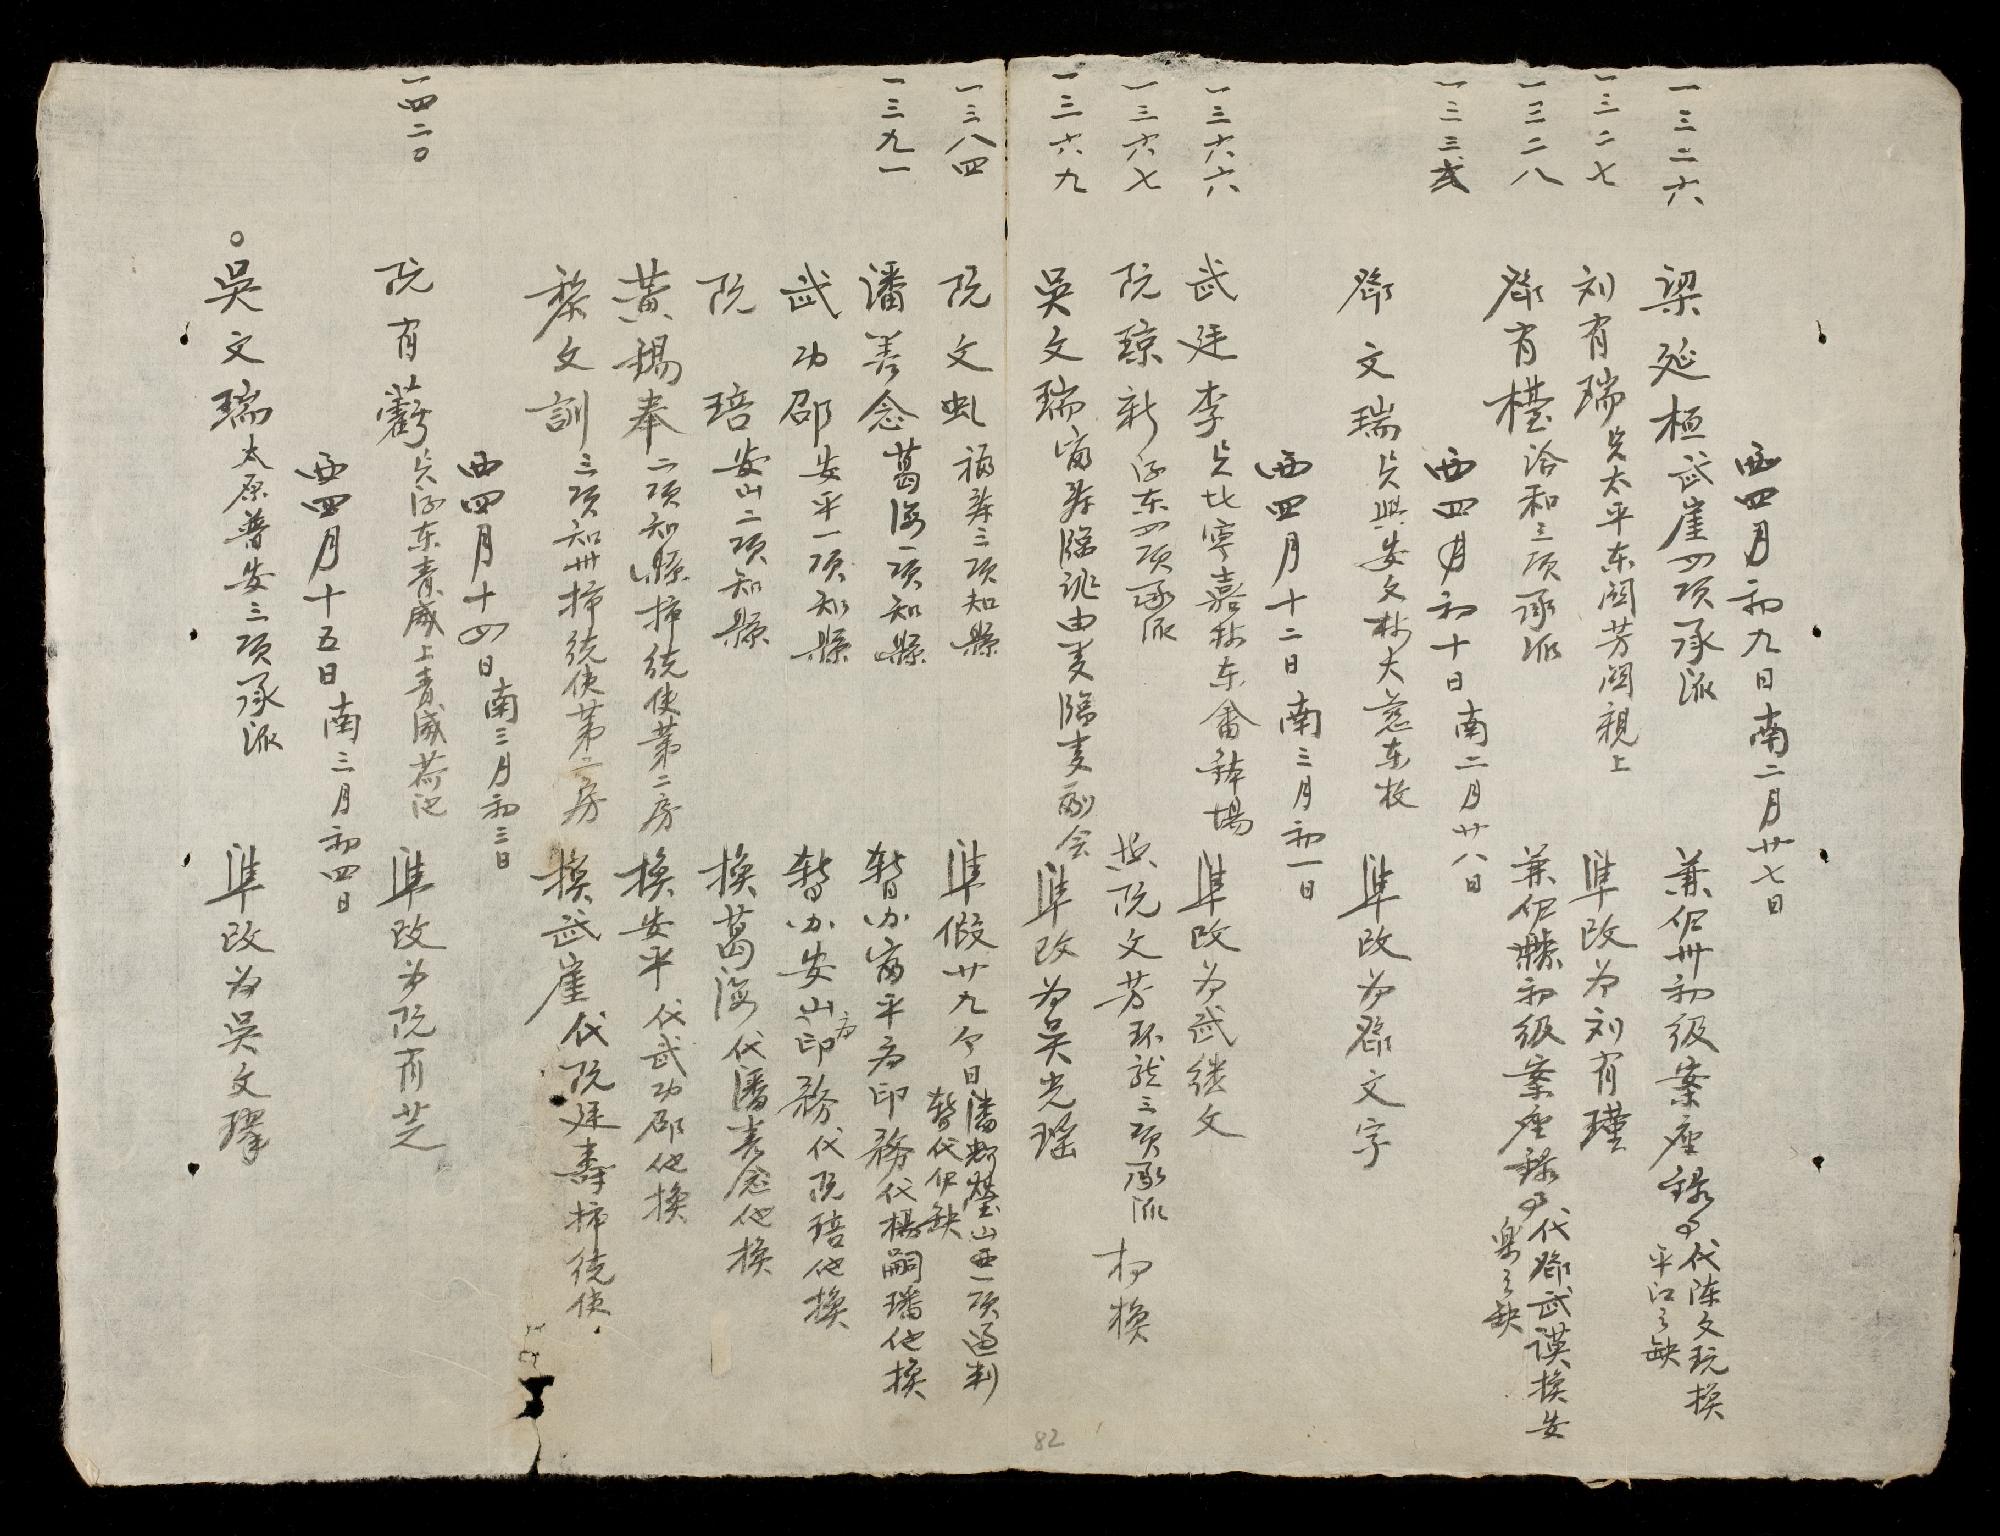 西四月初九日南二月廿七日
一三二六 梁延桓武崖四項承派 兼伲卅初級案座錄事代陈文玩换平江之缺
一三二七 刘有瑞貫太平东関芳関親上 準改为刘有瓘
一三二八 鄧有樁洽和三項承派 兼伲縣初級案座錄事代鄧武謨换安樂之缺
西四月初十日南二月廿八日
一三三 鄧文瑞貫興安文林大慈东枚 準改为鄧文字
西四月十二日南三月初一日
一三六六 武廷李貫北寧嘉林东畬鉢場 準改为武继文
一三六七 阮琼新河东四項承派 与阮文芳环龍三項承派相换
一三六九 吳文瑞富寿臨洮由麦臨麦副会 準改为吴光瑶
一三八四 阮文虬福寿三項知縣 準假廿九今日潘輝瑩山西一項通判暫代伲缺
一三九一 潘善念葛海一項知縣 暫办富平府印務代楊嗣璠他换
武功邵安平一項知縣 暫办安山府印務代阮琣他换
阮琣安山二項知縣 换葛海代潘善念他换
黃錫奉二項知縣拂统使第二房 换安平代武功邵他换
黎文訓三項知卅拂统使第二房 换武崖代阮廷壽拂统使
西四月十四日南三月初三日
一四二〇 阮有藭貫河东青威上青威荷池 準改为阮有芝
西四月十五日南三月初四日
〇吳文瑞太原普安三項承派 準改为吴文璻
82